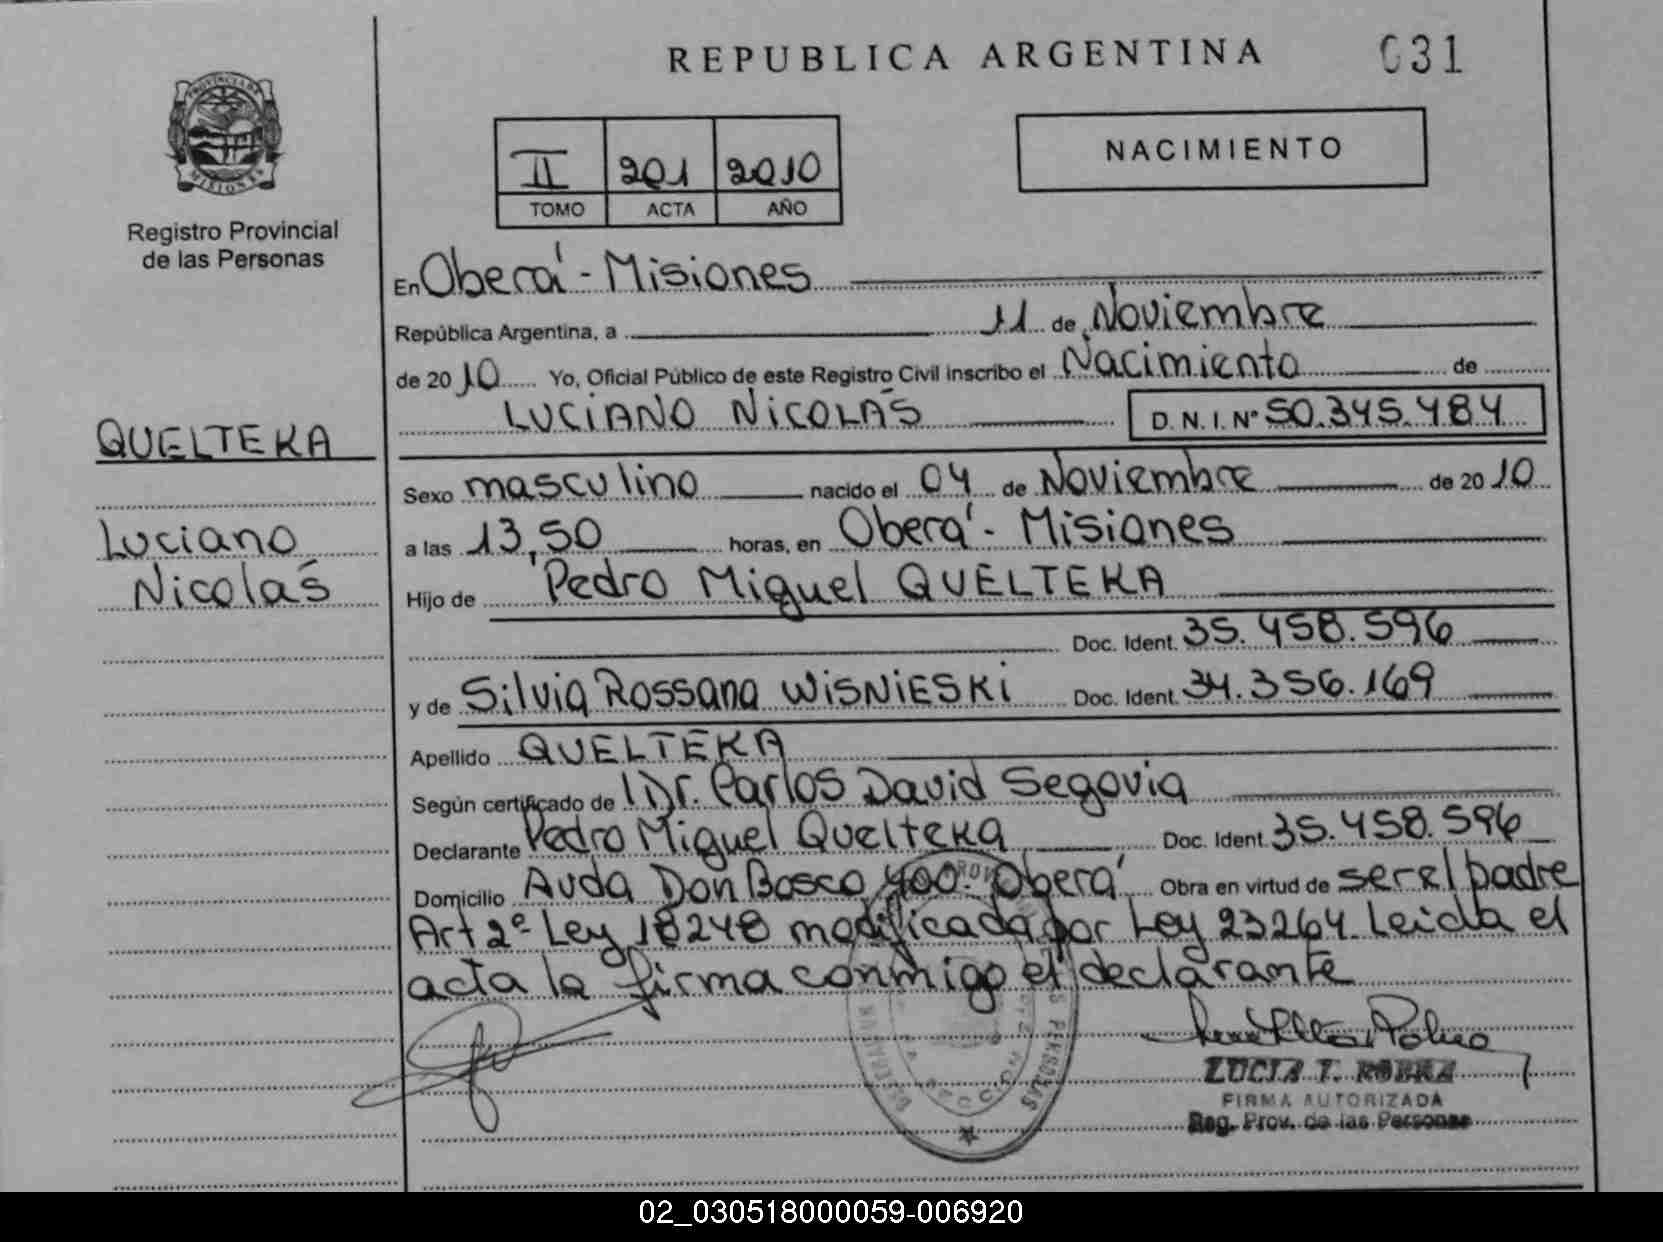 REPUBLICA ARGENTINA
031
PROVINCIA DE
MISIONES
Registro Provincial
de las Personas
II 201 2010
TOMO ACTA AÑO
NACIMIENTO
En Oberá - Misiones
República Argentina, a 11 de Noviembre
de 2010 Yo, Oficial Público de este Registro Civil inscribo el Nacimiento de
LUCIANO NICOLÁS D. N. I. Nº 50.345.484
QUELTEKA
Luciano
Nicolás
Sexo masculino nacido el 04 de Noviembre de 2010
a las 13,50 horas, en Oberá - Misiones
Hijo de Pedro Miguel QUELTEKA
Doc. Ident. 35.458.596
y de Silvia Rossana WISNIESKI Doc. Ident. 34.356.169
Apellido QUELTEKA
Según certificado de Dr. Carlos David Segovia
Declarante Pedro Miguel Quelteka Doc. Ident. 35.458.596
Domicilio Avda Don Bosco 400. Oberá Obra en virtud de ser el padre
Art 2º Ley 18248 modificada por Ley 23264. Leida el
acta la firma conmigo el declarante
LUCIA T.
FIRMA AUTORIZADA
Reg. Prov. de las Personas
02_030518000059-006920